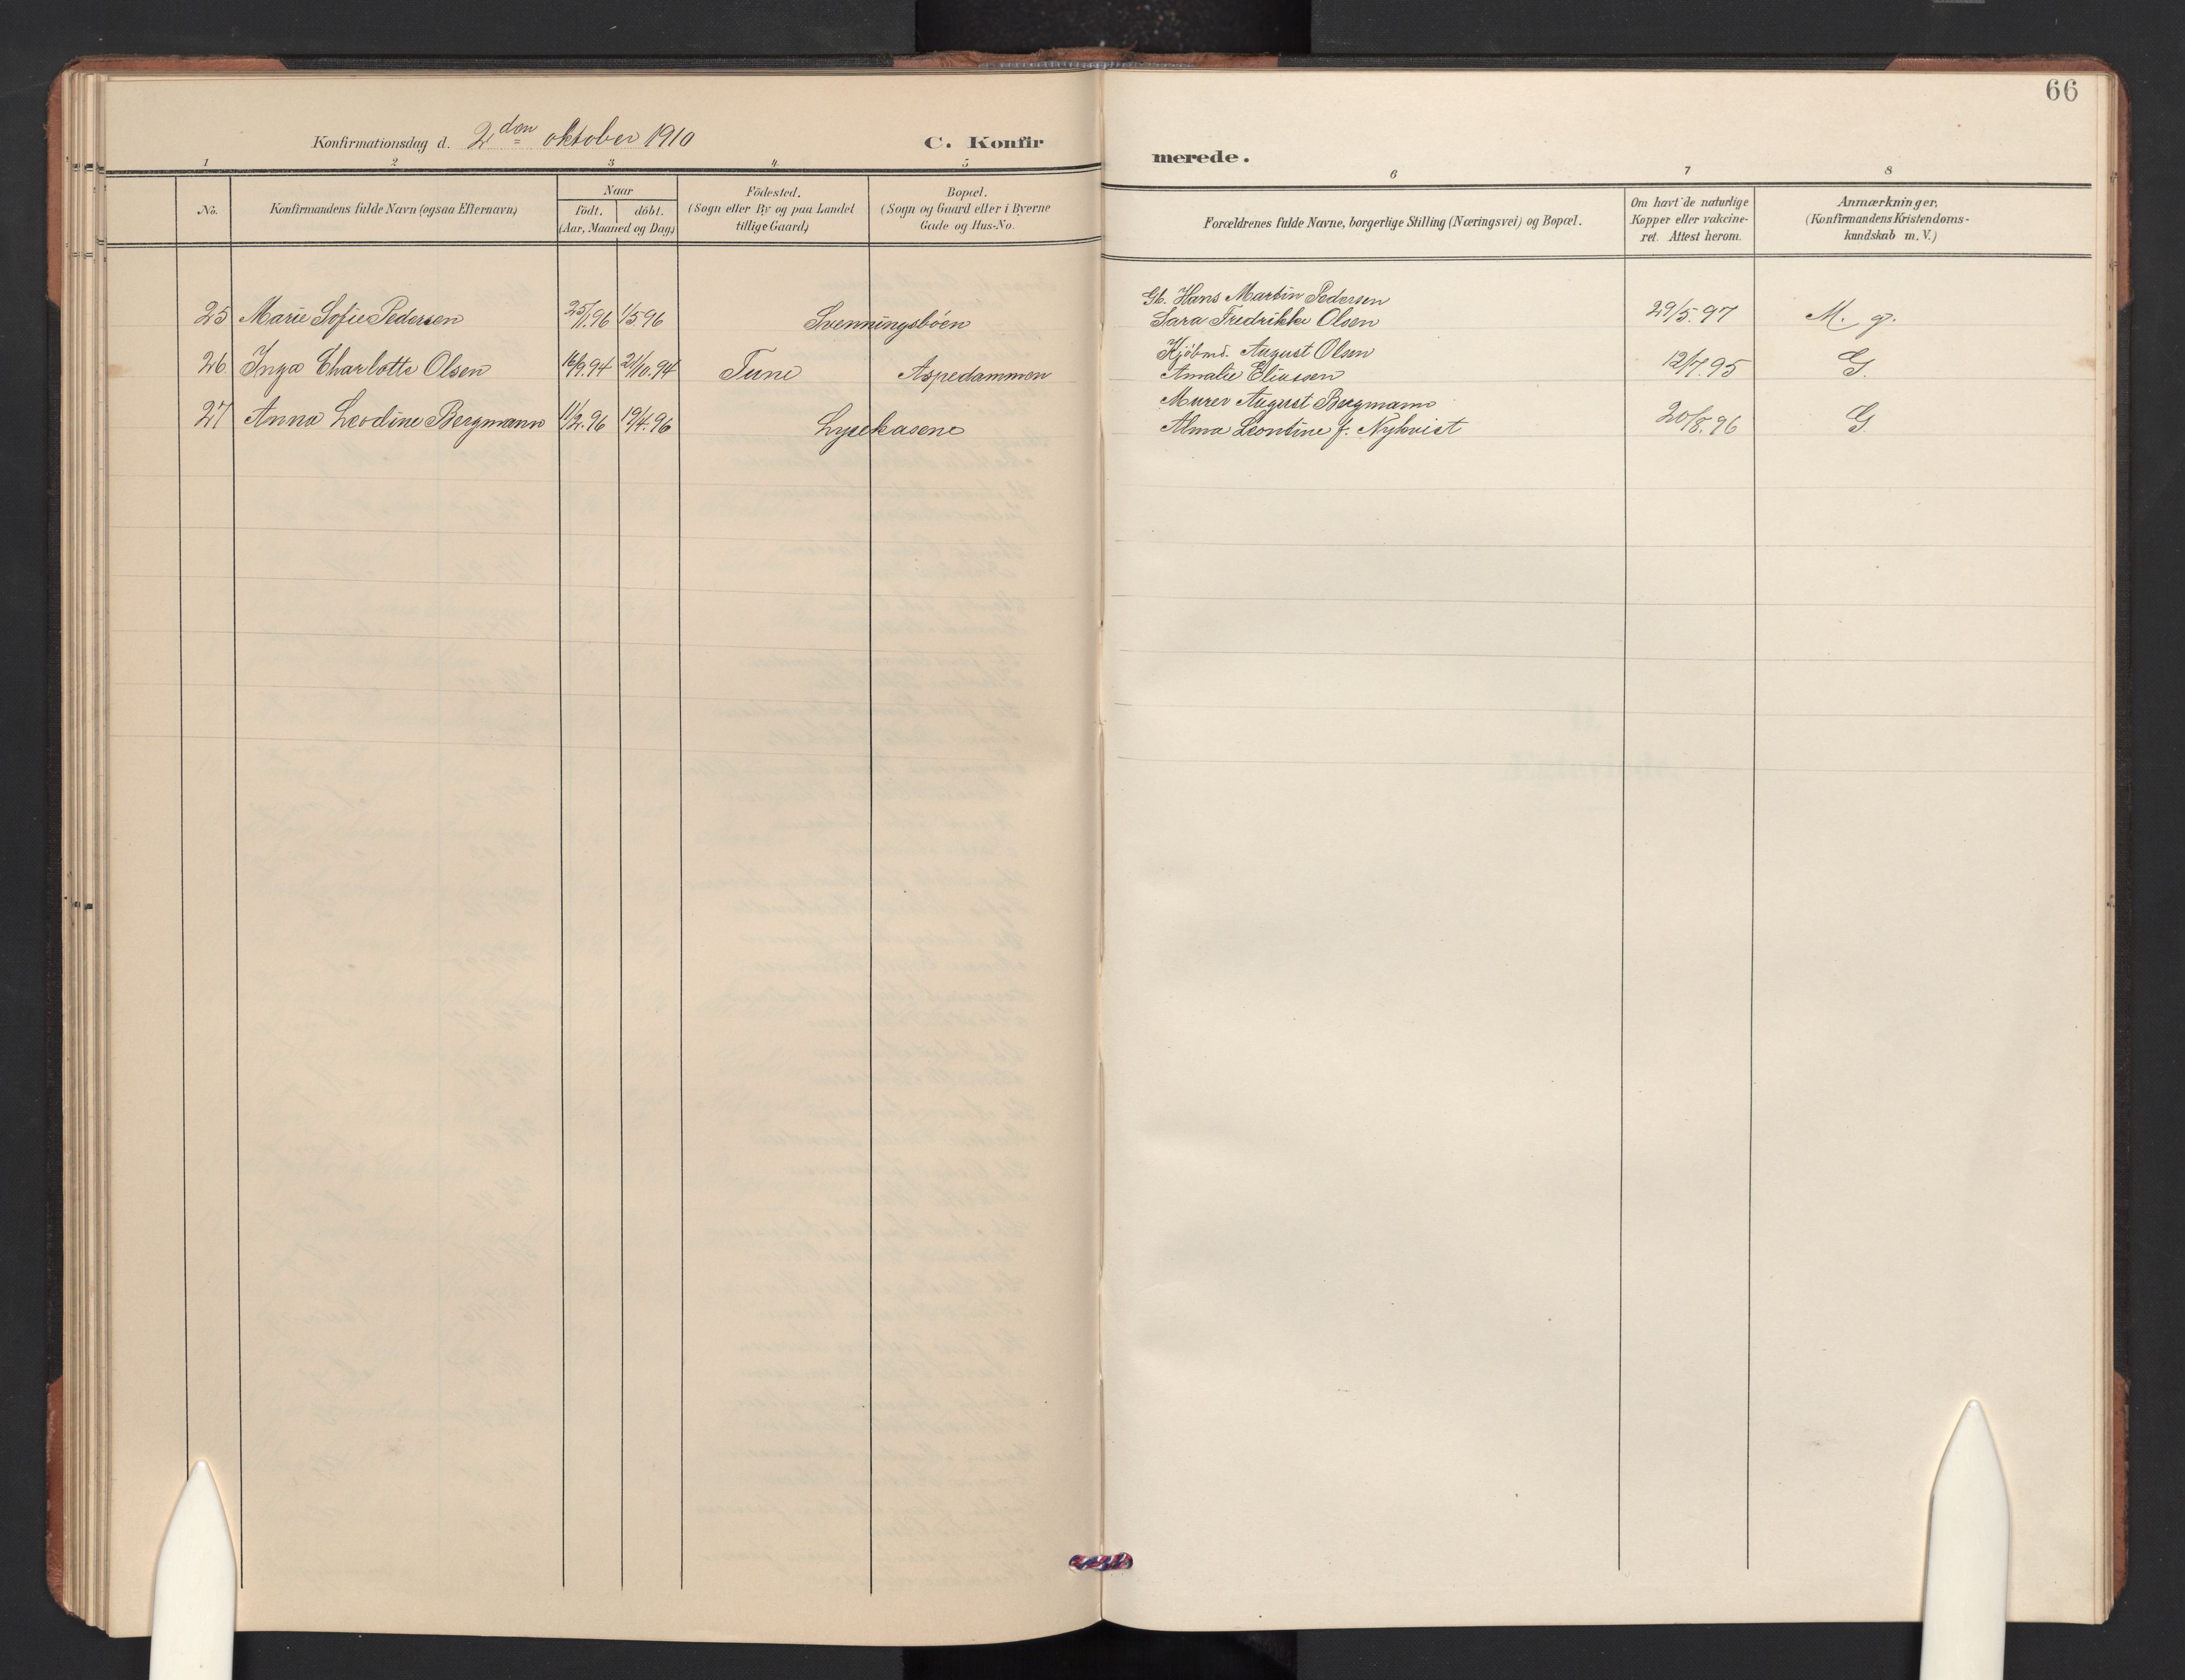 66
Konfirmationsdag d. 2den oktober 1910
C. Konfirmerede.
1 2 3 4 5 6 7 8
No.
Konfirmandens fulde Navn (ogsaa Efternavn)
Naar
födt. döbt.
(Aar, Maaned og Dag)
Födested.
(Sogn eller By og paa Landet
tillige Gaard)
Bopæl.
(Sogn og Gaard eller i Byerne
Gade og Hus-No.
Forældrenes fulde Navne, borgerlige Stilling (Næringsvei) og Bopæl.
Om havt de naturlige
Kopper eller vakcine-
ret. Attest herom.
Anmærkninger,
(Konfirmandens Kristendoms-
kundskab m. V.)
25 Marie Sofie Pedersen 25/1.96 1/5 96 Svenningsböen
Gb. Hans Martin Pedersen
Sara Fredrikke Olsen 29/5.97 M. g.
26. Inga Charlotte Olsen 16/9.94 21/10.94 Tune Aspedammen
Kjöbmd. August Olsen
Amalie Eliassen 12/7.95 G.
27 Anna Leodine Bergmann 11/2.96 19/4.96 Lysekasene
Murer August Bergmann
Alma Leontine f. Nykvist 20/8.96 G